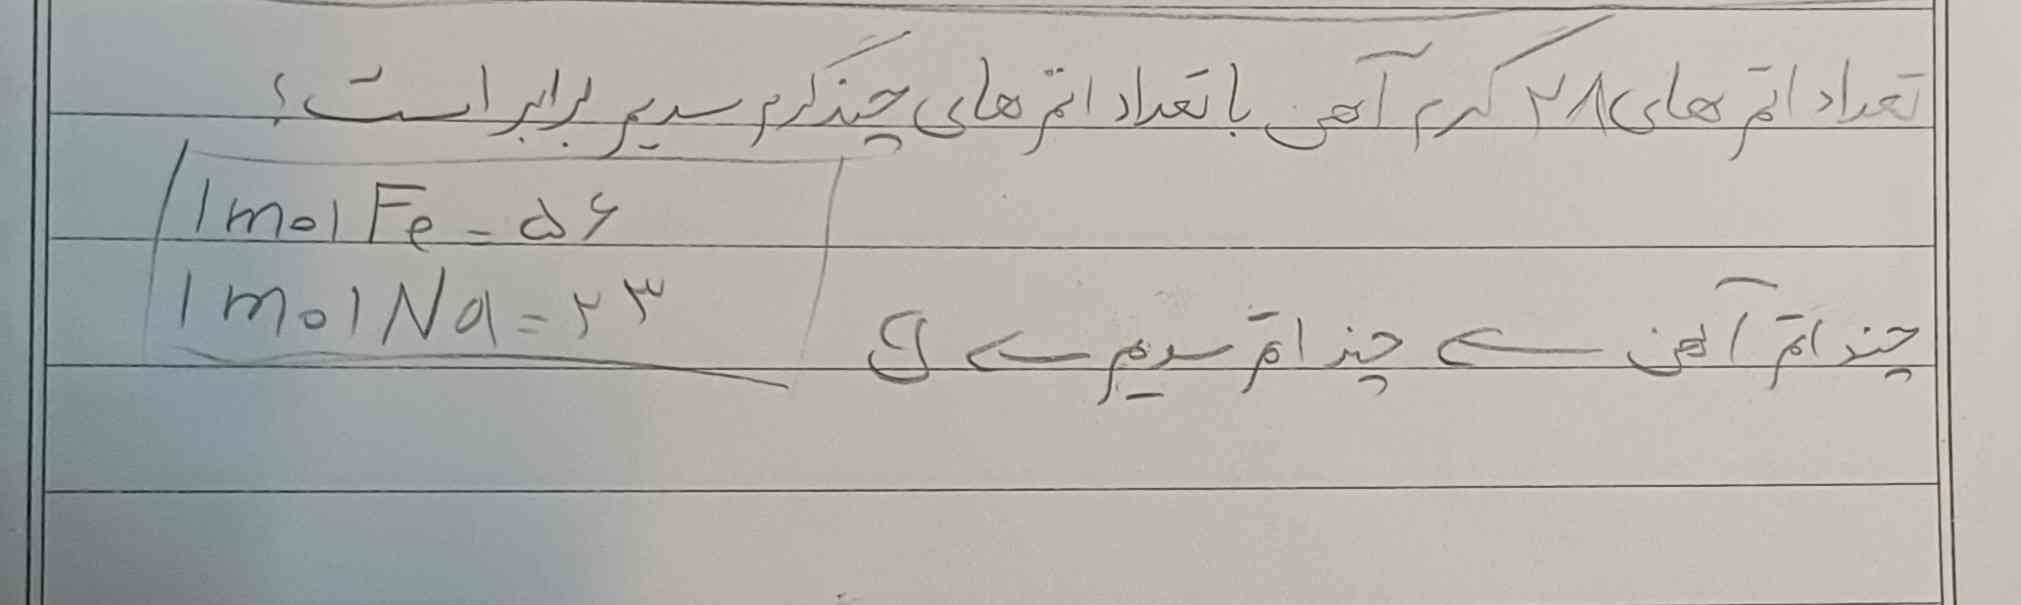 تعداد اتم های ۲۸ گرم آهن با تعداد اتم های چند گرم سدیم برابر است؟
1 mol Fe = ۵۶
1 mol Na = ۲۳
چند اتم آهن ← چند اتم سدیم ← g